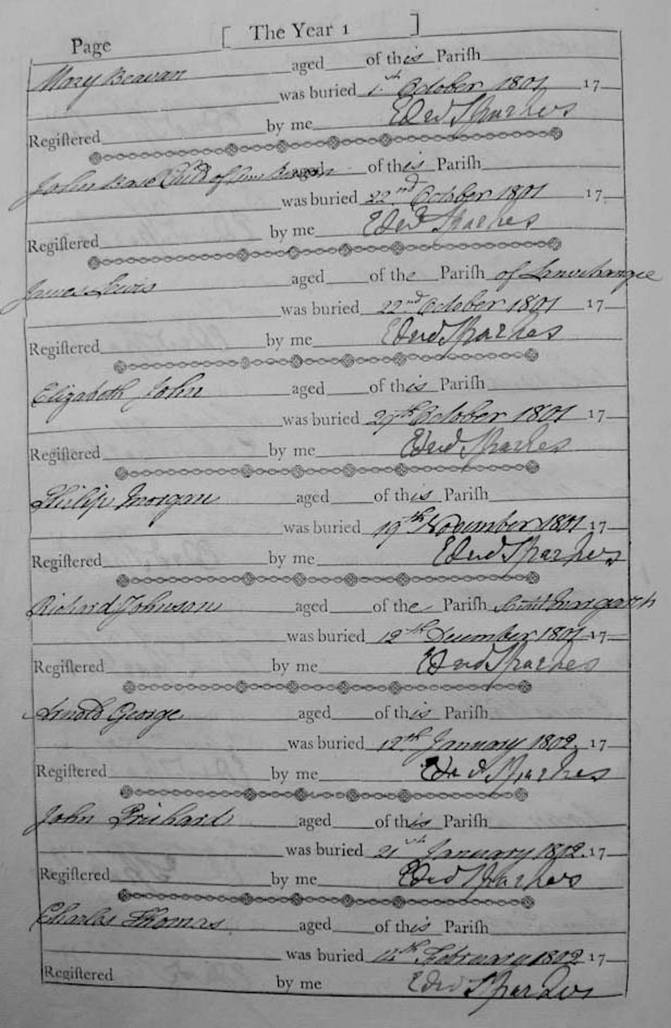 Page [ The Year 1 ]
Mary Beavan aged of this Pariſh
was buried 1st October 1801 17
Regiſtered by me Edwd Sparkes
John Base Child of Ann aged of this Pariſh
was buried 22nd October 1801 17
Regiſtered by me Edwd Sparkes
James Lewis aged of the Pariſh of
was buried 22nd October 1801 17
Regiſtered by me Edwd Sparkes
Elizabeth John aged of this Pariſh
was buried 27th October 1801 17
Regiſtered by me Edwd Sparkes
Philip Morgan aged of this Pariſh
was buried 19th November 1801 17
Regiſtered by me Edwd Sparkes
Richard Johnson aged of the Pariſh
was buried 12th December 1801 17
Regiſtered by me Edwd Sparkes
Arnold George aged of this Pariſh
was buried 12th January 1802 17
Regiſtered by me Edwd Sparkes
John Prichard aged of this Pariſh
was buried 21st January 1802 17
Regiſtered by me Edwd Sparkes
Charles Thomas aged of this Pariſh
was buried February 1802 17
Regiſtered by me Edwd Sparkes